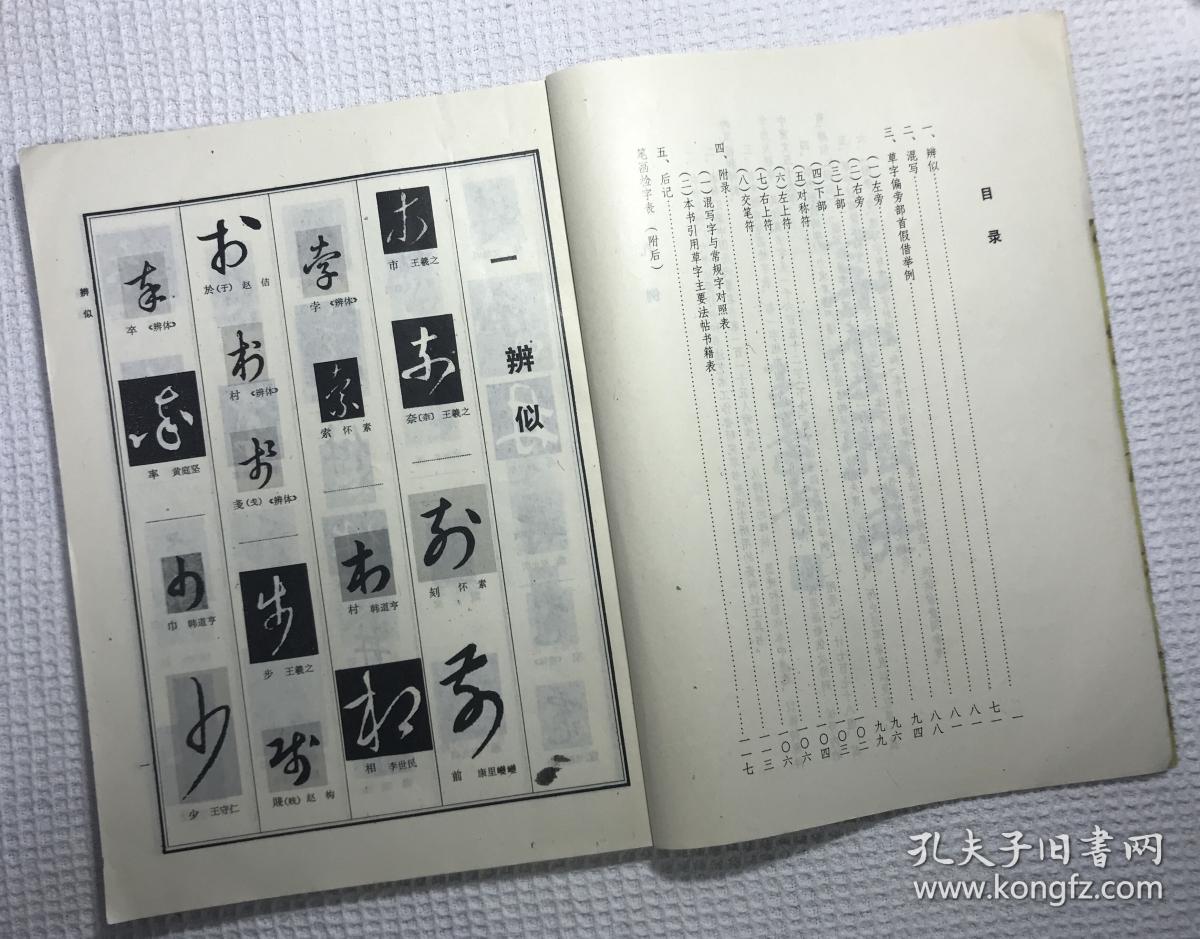 目录
一、辨似 一
二、混写 七一
三、草字偏旁部首假借举例 八一
（一）左旁 八一
（二）右旁 八八
（三）上部 九四
（四）下部 九六
（五）对称符 九九
（六）左上符 一〇二
（七）右上符 一〇三
（八）交笔符 一〇四
四、附录 一〇六
（一）混写字与常规字对照表 一〇六
（二）本书引用草字主要法帖书籍表 一一三
五、后记 一一七
笔画检字表（附后）
一 辨似
市 王羲之
奈〔柰〕王羲之
刻 怀素
前 康里巎巎
孛 《辨体》
索 怀素
村 韩道亨
相 李世民
於(于) 赵佶
村 《辨体》
戔(戋)《辨体》
步 王羲之
賤(贱) 赵构
卒 《辨体》
率 黄庭坚
巾 韩道亨
少 王守仁
辨似
一
孔夫子旧书网
www.kongfz.com